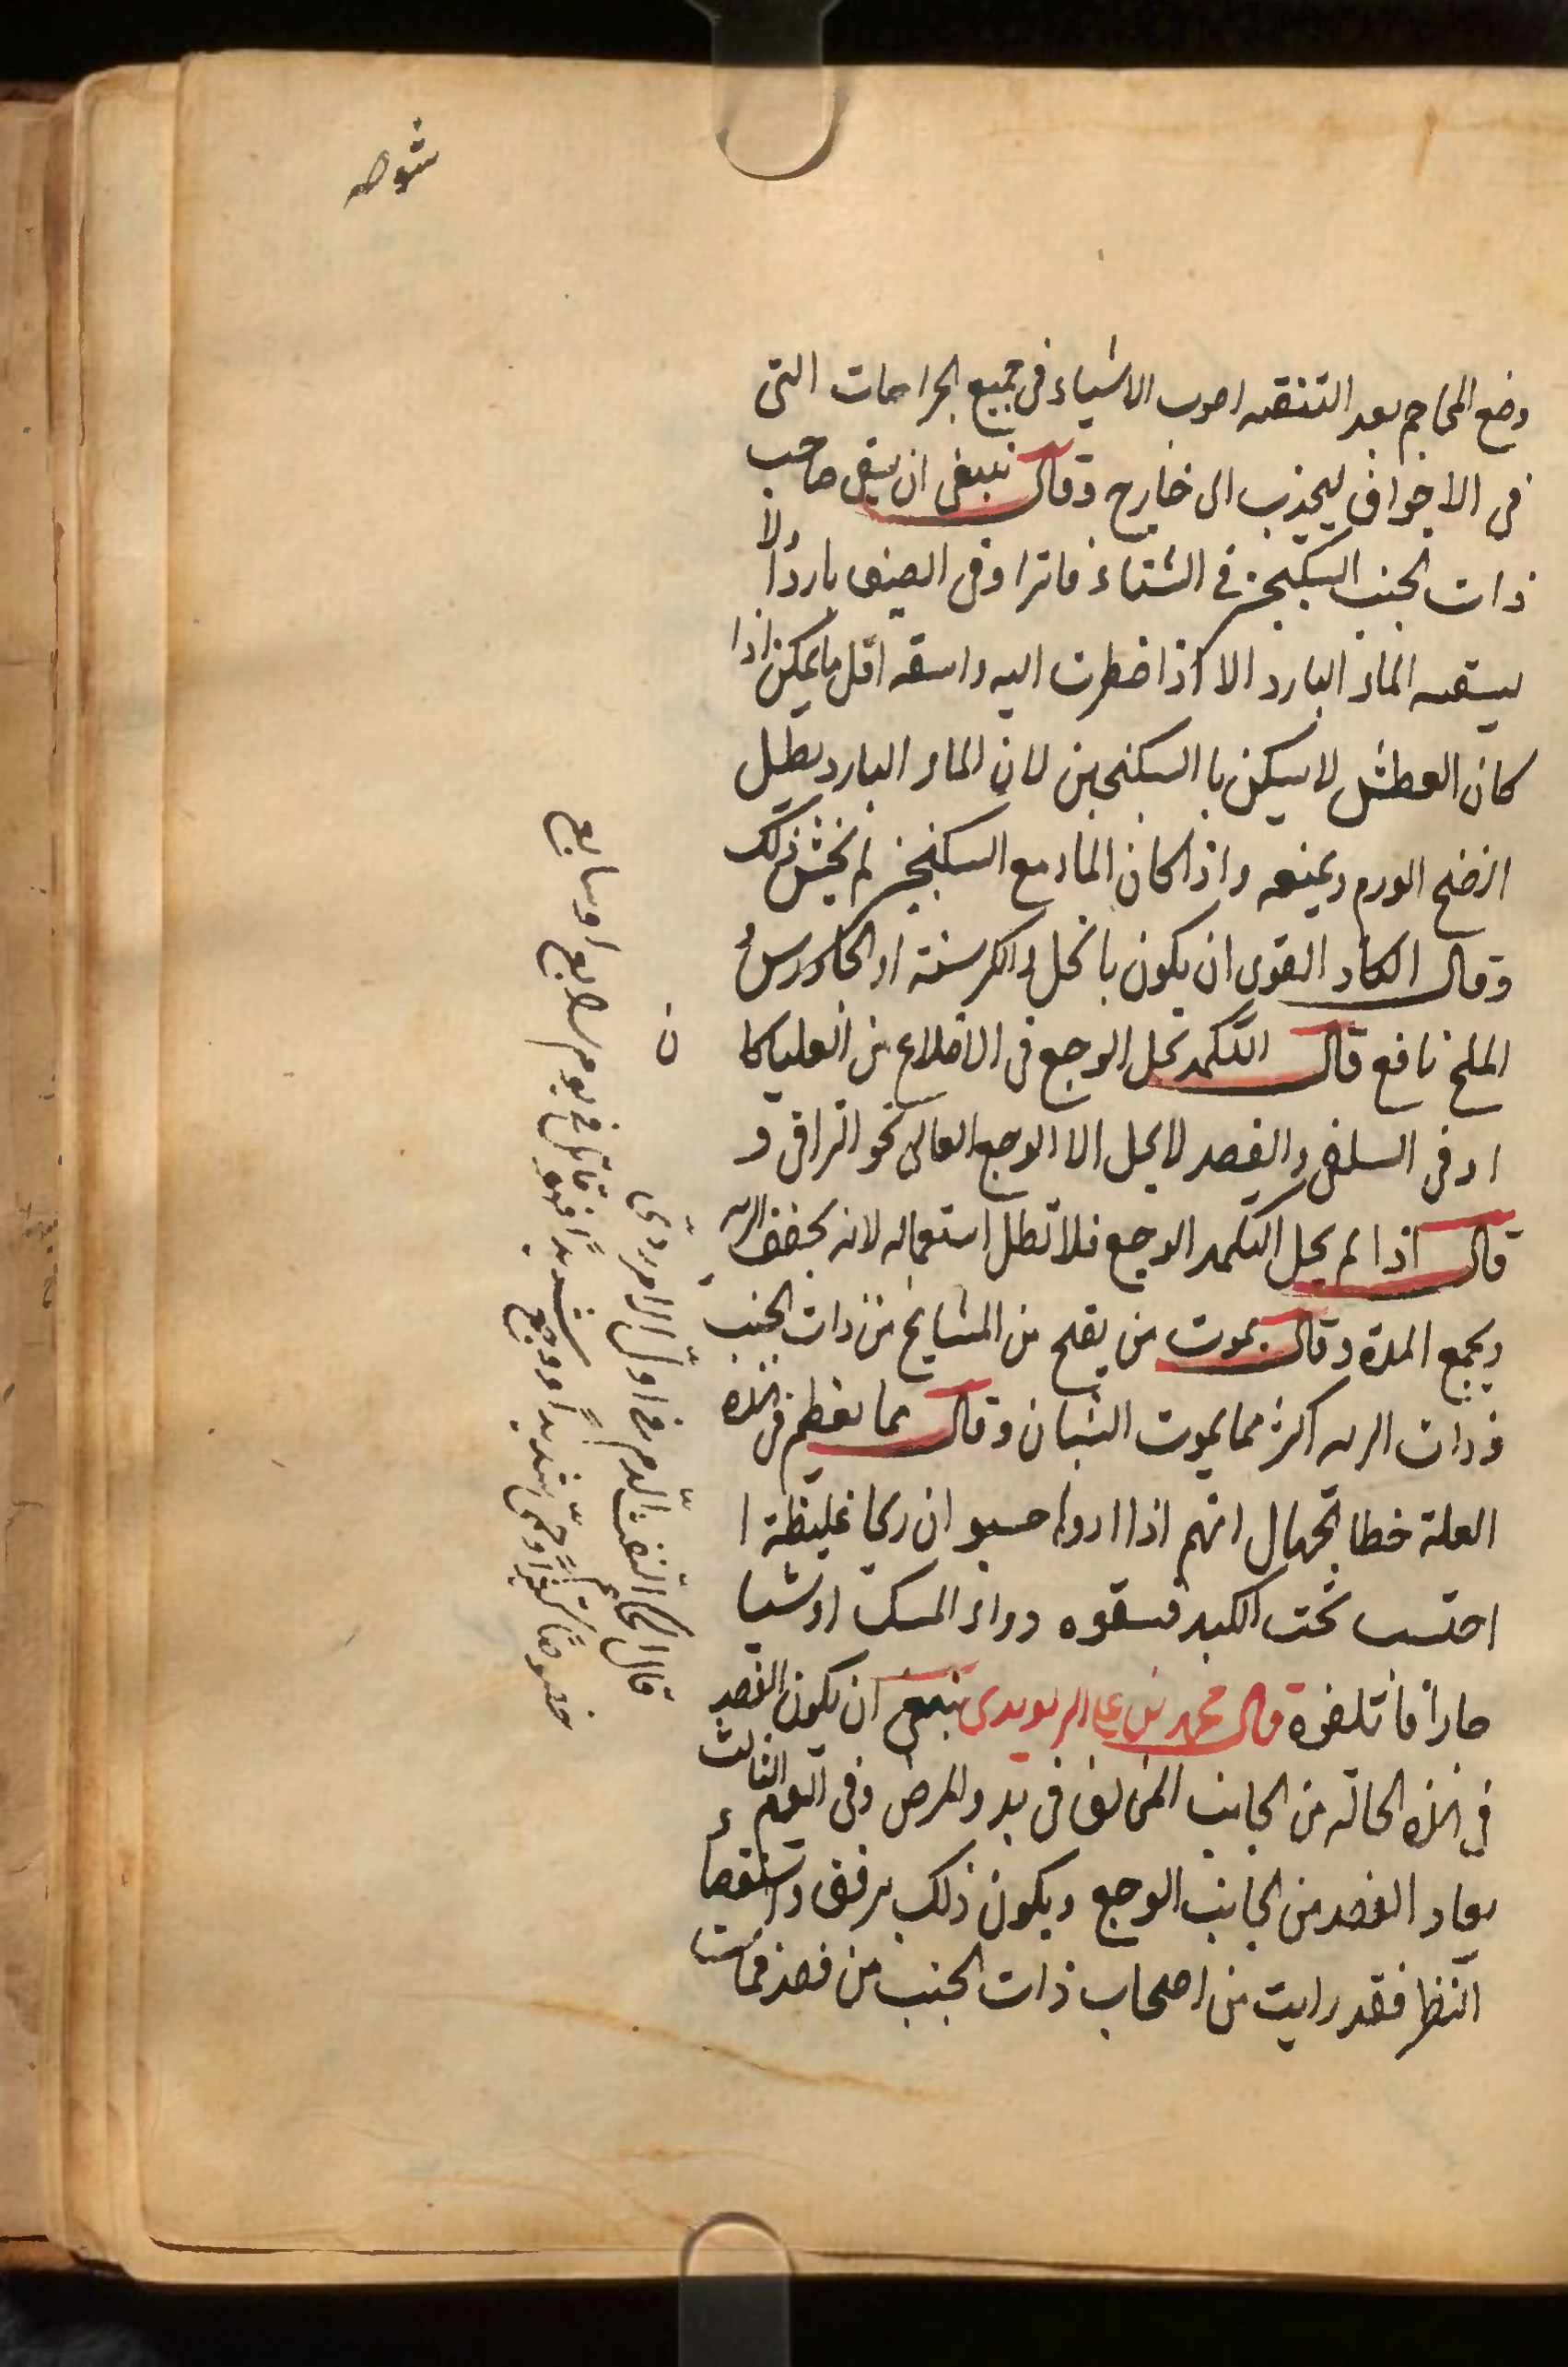 شوصه
وضع المحاجم بعد التنقيه اصوب الاشياء فى جميع الجراحات التى
فى الاجواف ليجذب الى خارج وقال ينبغى ان يسقى صاحب
ذات الجنب السكنجبين فى الشتاء فاترا وفى الصيف باردا ولا
يسقيه الماء البارد الا اذا اضطرت اليه واسقه اقل ما يمكن اذا
كان العطش لا يسكن با السكنجبين لان الماء البارد يطيل
النضج الورم ويمنعه واذا كان الماء مع السكنجبين لم يخش ذلك
وقال الكماد القوى ان يكون بالخل والكرسنة او الجاورس و
الملح نافع قال التكميد يحل الوجع فى الاضلاع من العليا كا
او فى السلفى والفصد لا يحل الا الوجع العالى نحو التراقى و
قال اذا لم يحل التكميد الوجع فلا تطل استعماله لانه يجفف الريه
ويجمع المدة وقال يموت من يقلح من المشايخ من ذات الجنب
وذات الريه اكثر مما يموت الشبان وقال مما يعظم فى هذه
العلة خطا الجهال انهم اذا اردوا حسبو ان ريحا غليظة ا
احتسب تحت الكبد فسقوه دواء المسك او شيا
حارا فاتلفوه قال محمد بن على الربوبدى ينبغى ان يكون الفصد
فى هذه الحالة من الجانب المخالف فى بدو المرض وفى اليوم الثالث
يعاد الفصد من الجانب الوجع ويكون ذلك برفق واستقصاء
النظر فقد رايت من اصحاب ذات الجنب من فصد فمات
ن
قال الحكماء التنفث الدم فى اول الامر ردى
خصوصا كثيرا وحمى شديدا ووجع شديدا فهو قاتل فى يوم الرابع او سابع